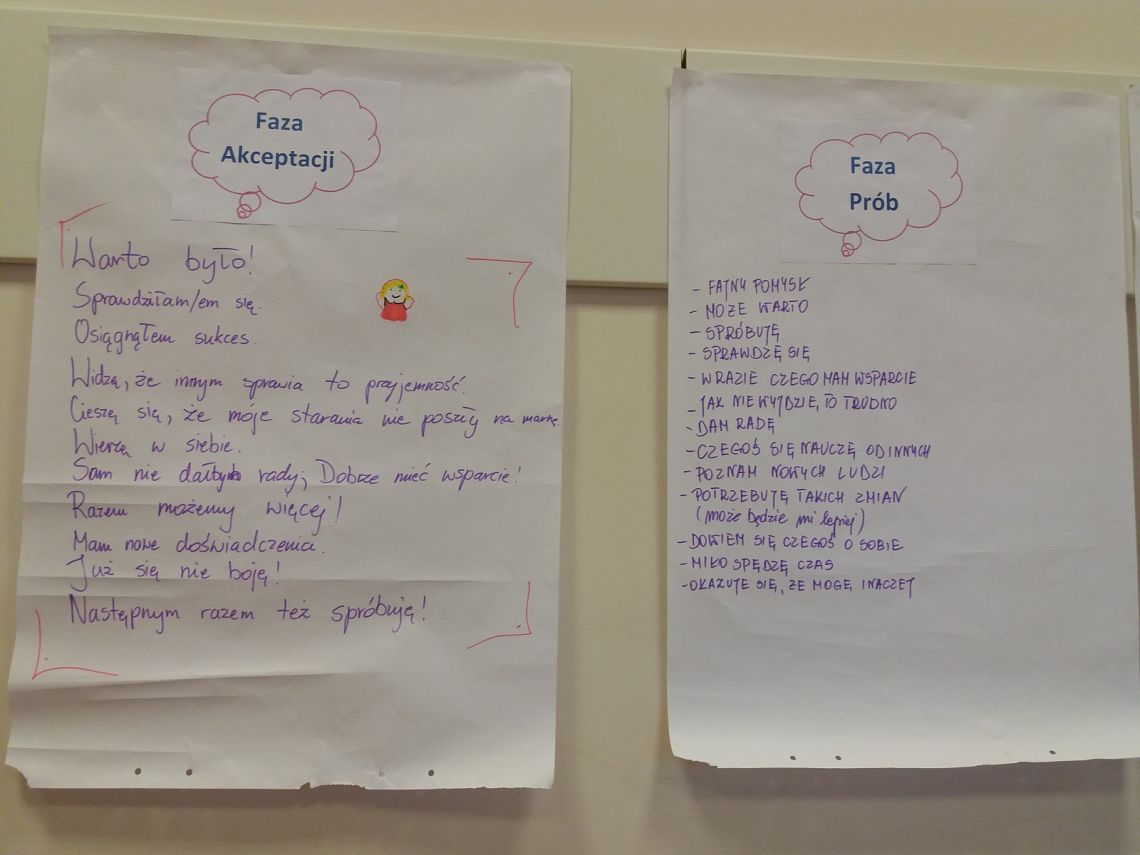 Faza
Akceptacji
Warto było!
Sprawdziłam/em się.
Osiągnąłem sukces.
Widzę, że innym sprawia to przyjemność.
Cieszę się, że moje starania nie poszły na marnę.
Wierzę w siebie.
Sam nie dałbym rady; Dobrze mieć wsparcie!
Razem możemy więcej!
Mam nowe doświadczenia.
Już się nie boję!
Następnym razem też spróbuję!
Faza
Prób
- FAJNY POMYSŁ
- MOŻE WARTO
- SPRÓBUJĘ
- SPRAWDZĘ SIĘ
- W RAZIE CZEGO MAM WSPARCIE
- JAK NIE WYJDZIE, TO TRUDNO
- DAM RADĘ
- CZEGOŚ SIĘ NAUCZĘ OD INNYCH
- POZNAM NOWYCH LUDZI
- POTRZEBUJĘ TAKICH ZMIAN
(może będzie mi lepiej)
- DOWIEM SIĘ CZEGOŚ O SOBIE
- MIŁO SPĘDZĘ CZAS
- OKAZUJE SIĘ, ŻE MOGĘ INACZEJ